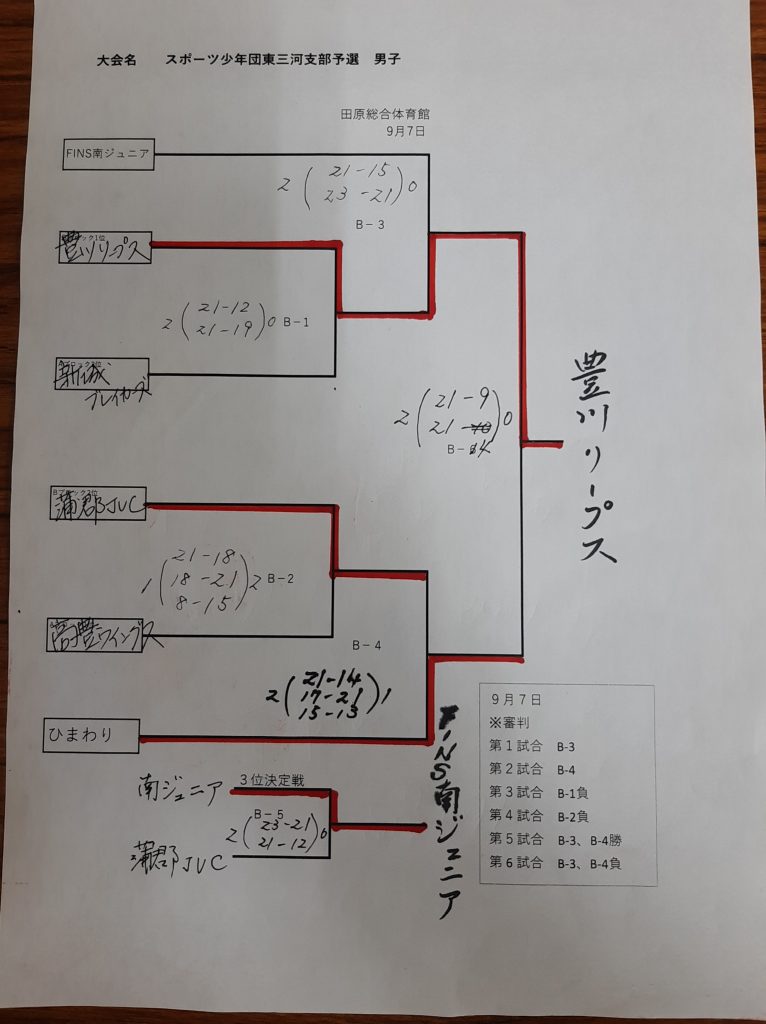 大会名 スポーツ少年団東三河支部予選 男子
田原総合体育館
9月7日
FINS南ジュニア
2 ( 21-15
23-21 ) 0
B-3
豊川リープス
2 ( 21-12
21-19 ) 0 B-1
新城
ブレイカーズ
2 ( 21-9
21- ) 0
B-
豊川リープス
蒲郡JVC
1 ( 21-18
18-21
8-15 ) 2 B-2
高豊ウイングス
B-4
2 ( 21-14
17-21
15-13 ) 1
ひまわり
3位決定戦
南ジュニア
B-5
2 ( 23-21
21-12 ) 0
蒲郡JVC
FINS南ジュニア
9月7日
※審判
第1試合 B-3
第2試合 B-4
第3試合 B-1負
第4試合 B-2負
第5試合 B-3、B-4勝
第6試合 B-3、B-4負